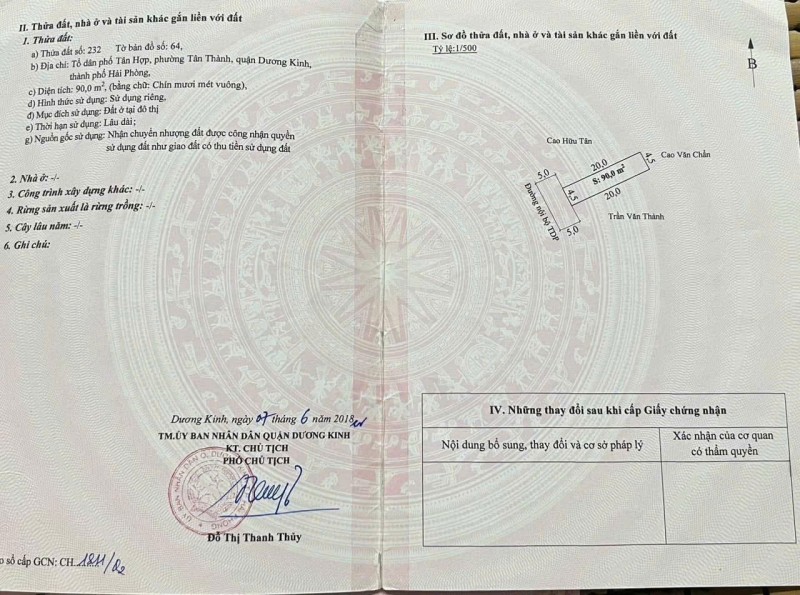 II. Thửa đất, nhà ở và tài sản khác gắn liền với đất
1. Thửa đất:
a) Thửa đất số: 232 Tờ bản đồ số: 64,
b) Địa chỉ: Tổ dân phố Tân Hợp, phường Tân Thành, quận Dương Kinh,
thành phố Hải Phòng,
c) Diện tích: 90,0 m², (bằng chữ: Chín mươi mét vuông),
d) Hình thức sử dụng: Sử dụng riêng,
đ) Mục đích sử dụng: Đất ở tại đô thị
e) Thời hạn sử dụng: Lâu dài;
g) Nguồn gốc sử dụng: Nhận chuyển nhượng đất được công nhận quyền
sử dụng đất như giao đất có thu tiền sử dụng đất
2. Nhà ở: -/-
3. Công trình xây dựng khác: -/-
4. Rừng sản xuất là rừng trồng: -/-
5. Cây lâu năm: -/-
6. Ghi chú:
Dương Kinh, ngày 07 tháng 6 năm 2018
TM.ỦY BAN NHÂN DÂN QUẬN DƯƠNG KINH
KT. CHỦ TỊCH
PHÓ CHỦ TỊCH
Đỗ Thị Thanh Thủy
sổ cấp GCN: CH.
III. Sơ đồ thửa đất, nhà ở và tài sản khác gắn liền với đất
Tỷ lệ:1/500
B
Cao Hữu Tân
Cao Văn Chắn
5,0
20,0
4,5
S: 90,0 m²
4,5
20,0
Đường nội bộ TDP
5,0
Trần Văn Thành
IV. Những thay đổi sau khi cấp Giấy chứng nhận
Nội dung bổ sung, thay đổi và cơ sở pháp lý
Xác nhận của cơ quan
có thẩm quyền